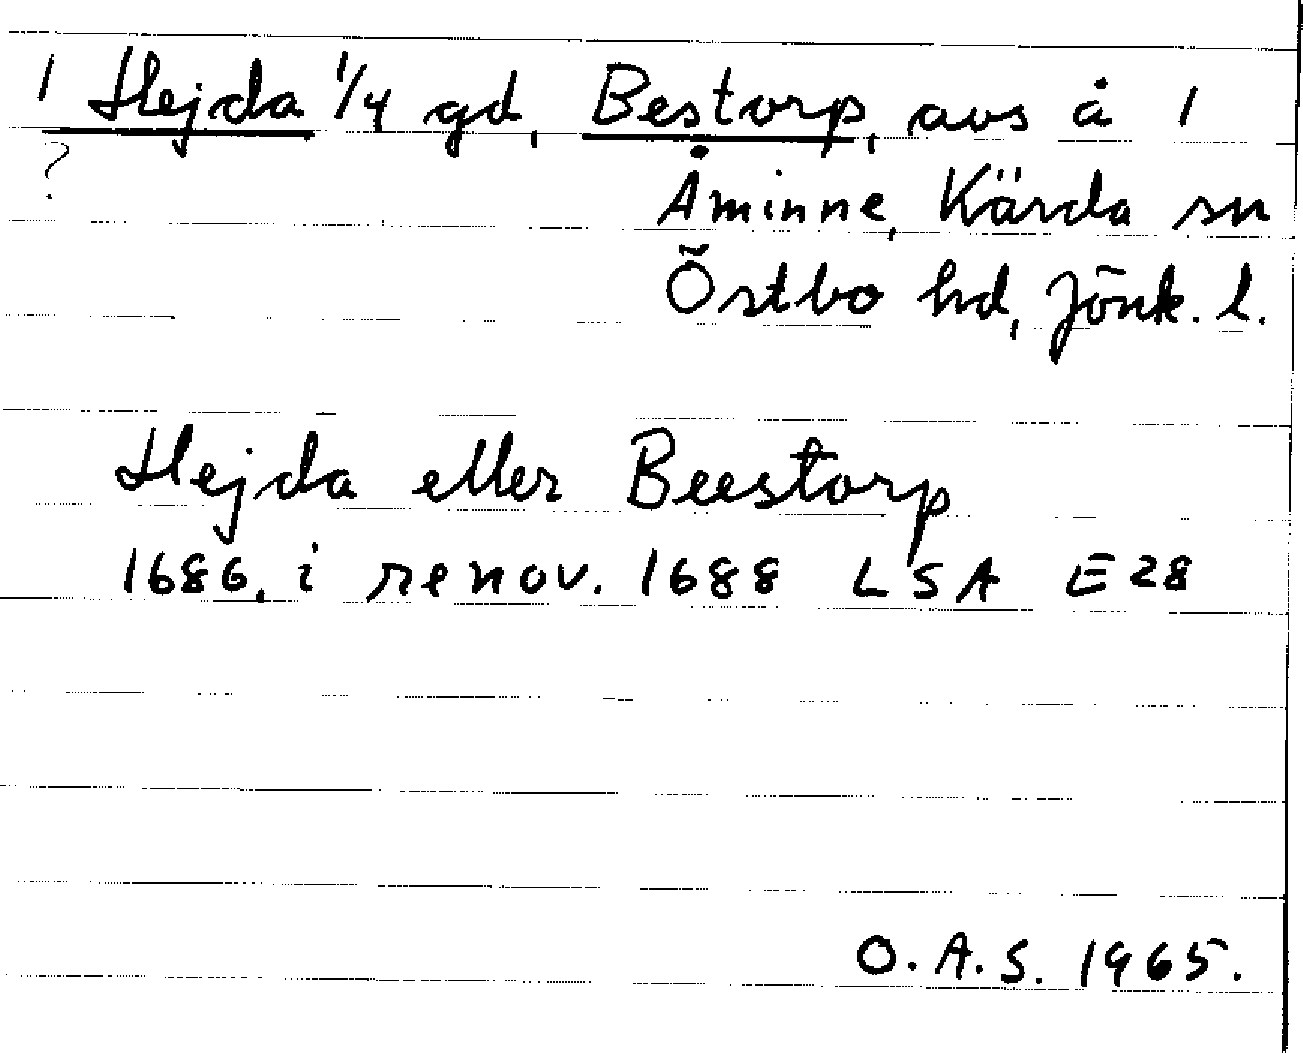 1 Hejda 1/4 gd, Bestorp, avs å 1
?
Åminne, Kärda sn
Östbo hd, Jönk. l.
Hejda eller Beestorp
1686, i renov. 1688 LSA E28
O.A.S. 1965.